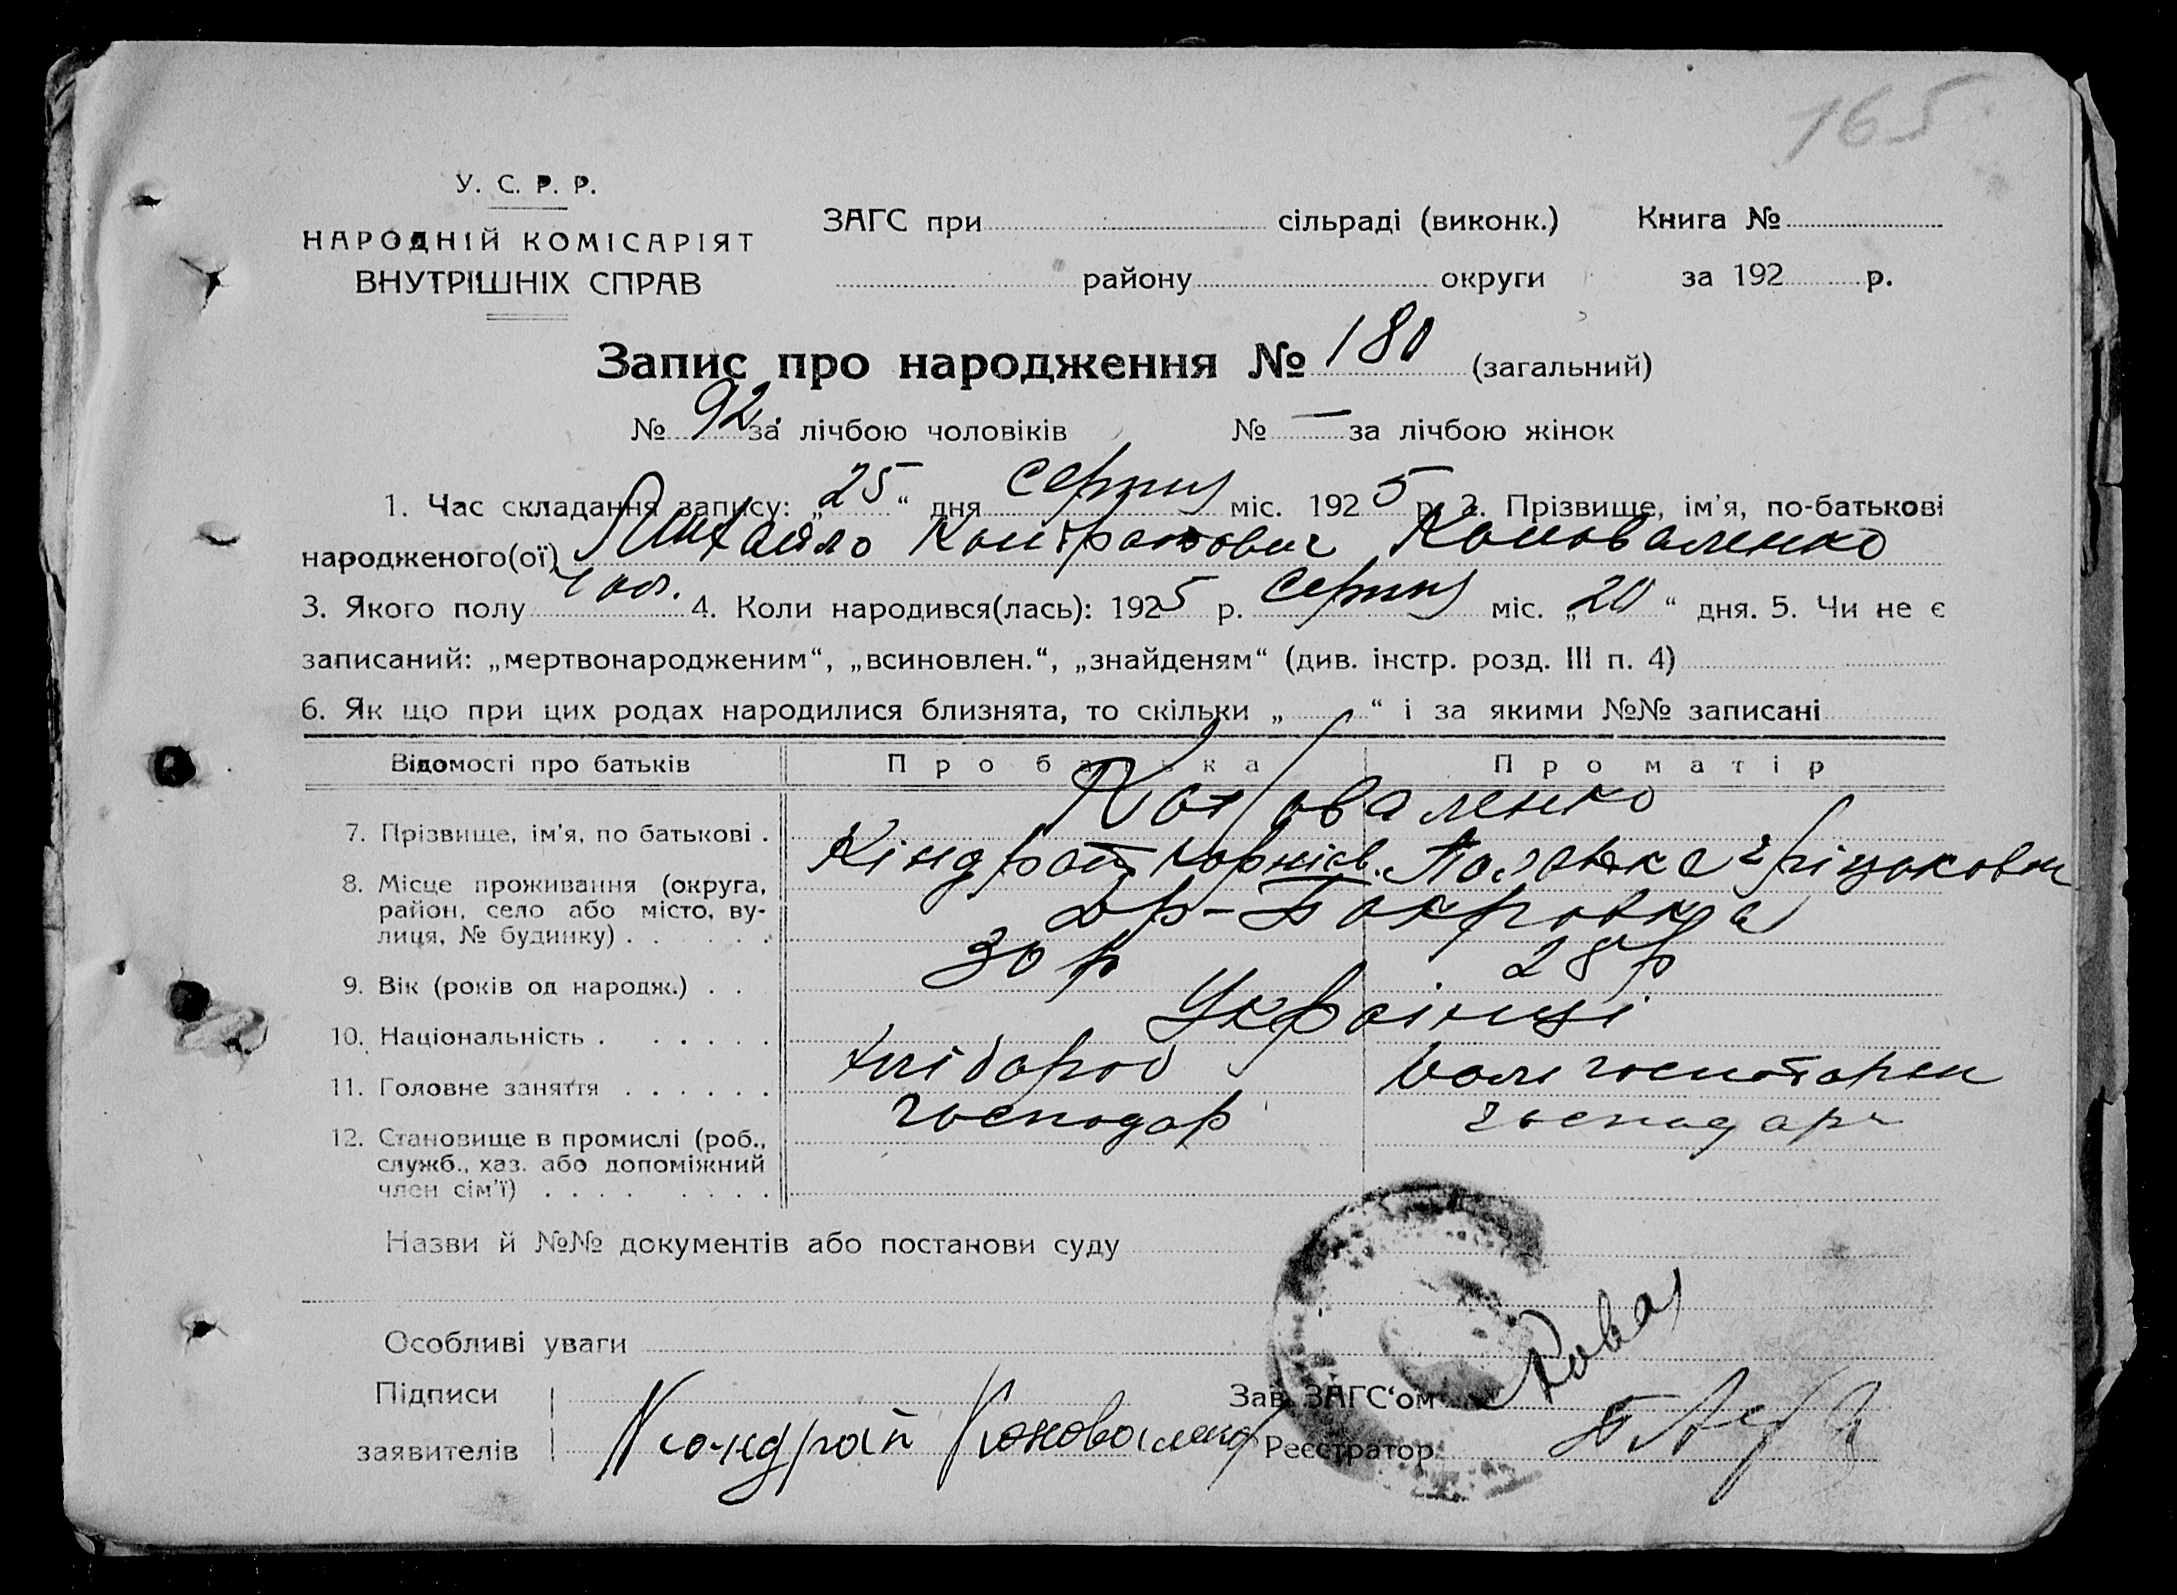 165
У. С. Р. Р.
НАРОДНІЙ КОМІСАРІЯТ
ВНУТРІШНІХ СПРАВ
ЗАГС при сільраді (виконк.) Книга №
району округи за 192 р.
Запис про народження № 180 (загальний)
№ 92 за лічбою чоловіків № — за лічбою жінок
1. Час складання запису: „25“ дня серпня міс. 1925 р. 2. Прізвище, ім'я, по-батькові
народженого(ої) Михайло Контратович Коноваленко
3. Якого полу чол. 4. Коли народився(лась): 1925 р. серпня міс. „20“ дня. 5. Чи не є
записаний: „мертвонародженим“, „всиновлен.“, „знайденям“ (див. інстр. розд. III п. 4)
6. Як що при цих родах народилися близнята, то скільки „ “ і за якими №№ записані
Відомості про батьків Про батька Про матір
7. Прізвище, ім'я, по батькові . Коноваленко
Кіндрат Корнієв.
8. Місце проживання (округа,
район, село або місто, ву-
лиця, № будинку) . . . Покровка
9. Вік (років од народж.) . . 30 р 28 р
10. Національність . . . . . . Українці
11. Головне заняття . . . . . . хлібороб
12. Становище в промислі (роб.,
служб., хаз. або допоміжний
член сім'ї) . . . . господар
Назви й №№ документів або постанови суду
Особливі уваги
Підписи
заявителів Кондрат Коноваленко
Зав. ЗАГС‘ом
Реєстратор